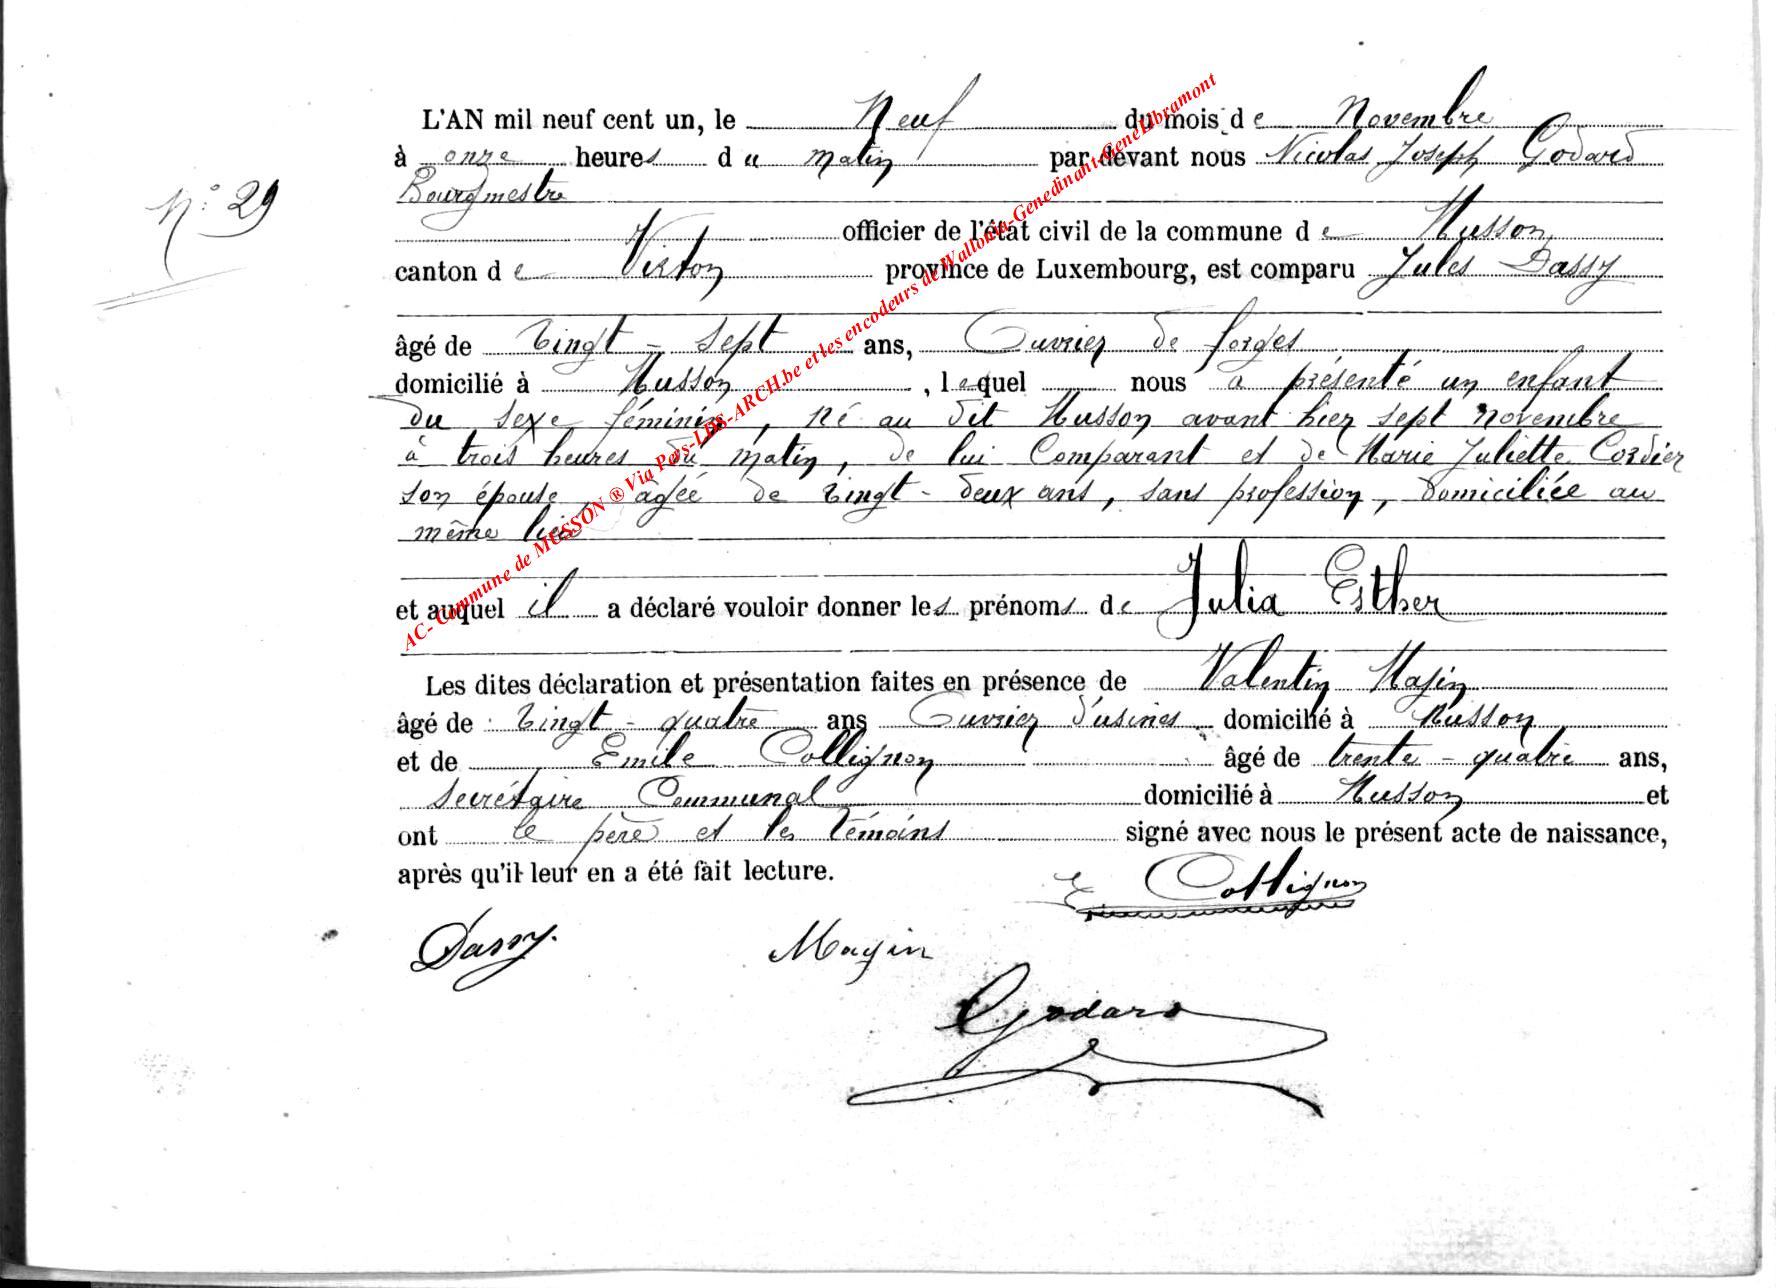 L'AN mil neuf cent un, le Neuf du mois de Novembre
à onze heures du matin par devant nous Nicolas Joseph Godard
Bourgmestre
N° 29
officier de l'état civil de la commune de Musson
canton de Virton province de Luxembourg, est comparu Jules Dassy
âgé de vingt-sept ans, Ouvrier de forges
domicilié à Musson, lequel nous a présenté un enfant
du sexe féminin, né au dit Musson avant hier sept novembre
à trois heures du matin, de lui Comparant et de Marie Juliette Cordier
son épouse, âgée de vingt-deux ans, sans profession, domiciliée au
même lieu
et auquel il a déclaré vouloir donner les prénoms de Julia Esther
Les dites déclaration et présentation faites en présence de Valentin Majin
âgé de vingt-quatre ans Ouvrier d'usines domicilié à Musson
et de Emile Collignon âgé de trente-quatre ans,
Secrétaire Communal domicilié à Musson et
ont le père et les témoins signé avec nous le présent acte de naissance,
après qu'il leur en a été fait lecture.
E Collignon
Dassy. Majin
Godard
AC- Commune de MUSSON ® Via Pers-LDS-ARCH.be et les encodeurs de Wallonia-Genedinant-GeneLibramont